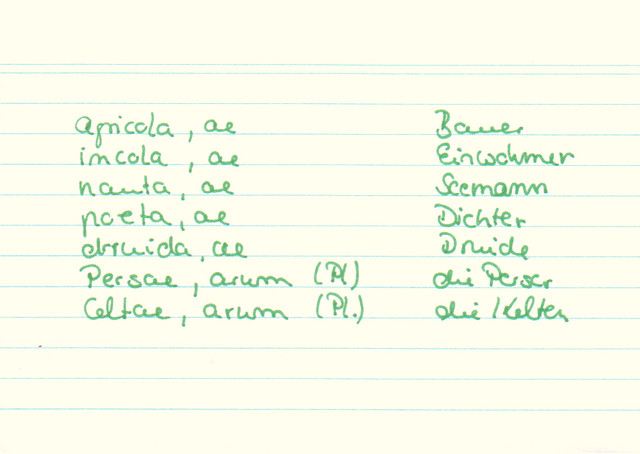 agricola, ae Bauer
incola, ae Einwohner
nauta, ae Seemann
poeta, ae Dichter
druida, ae Druide
Persae, arum (Pl) die Perser
Celtae, arum (Pl.) die Kelten